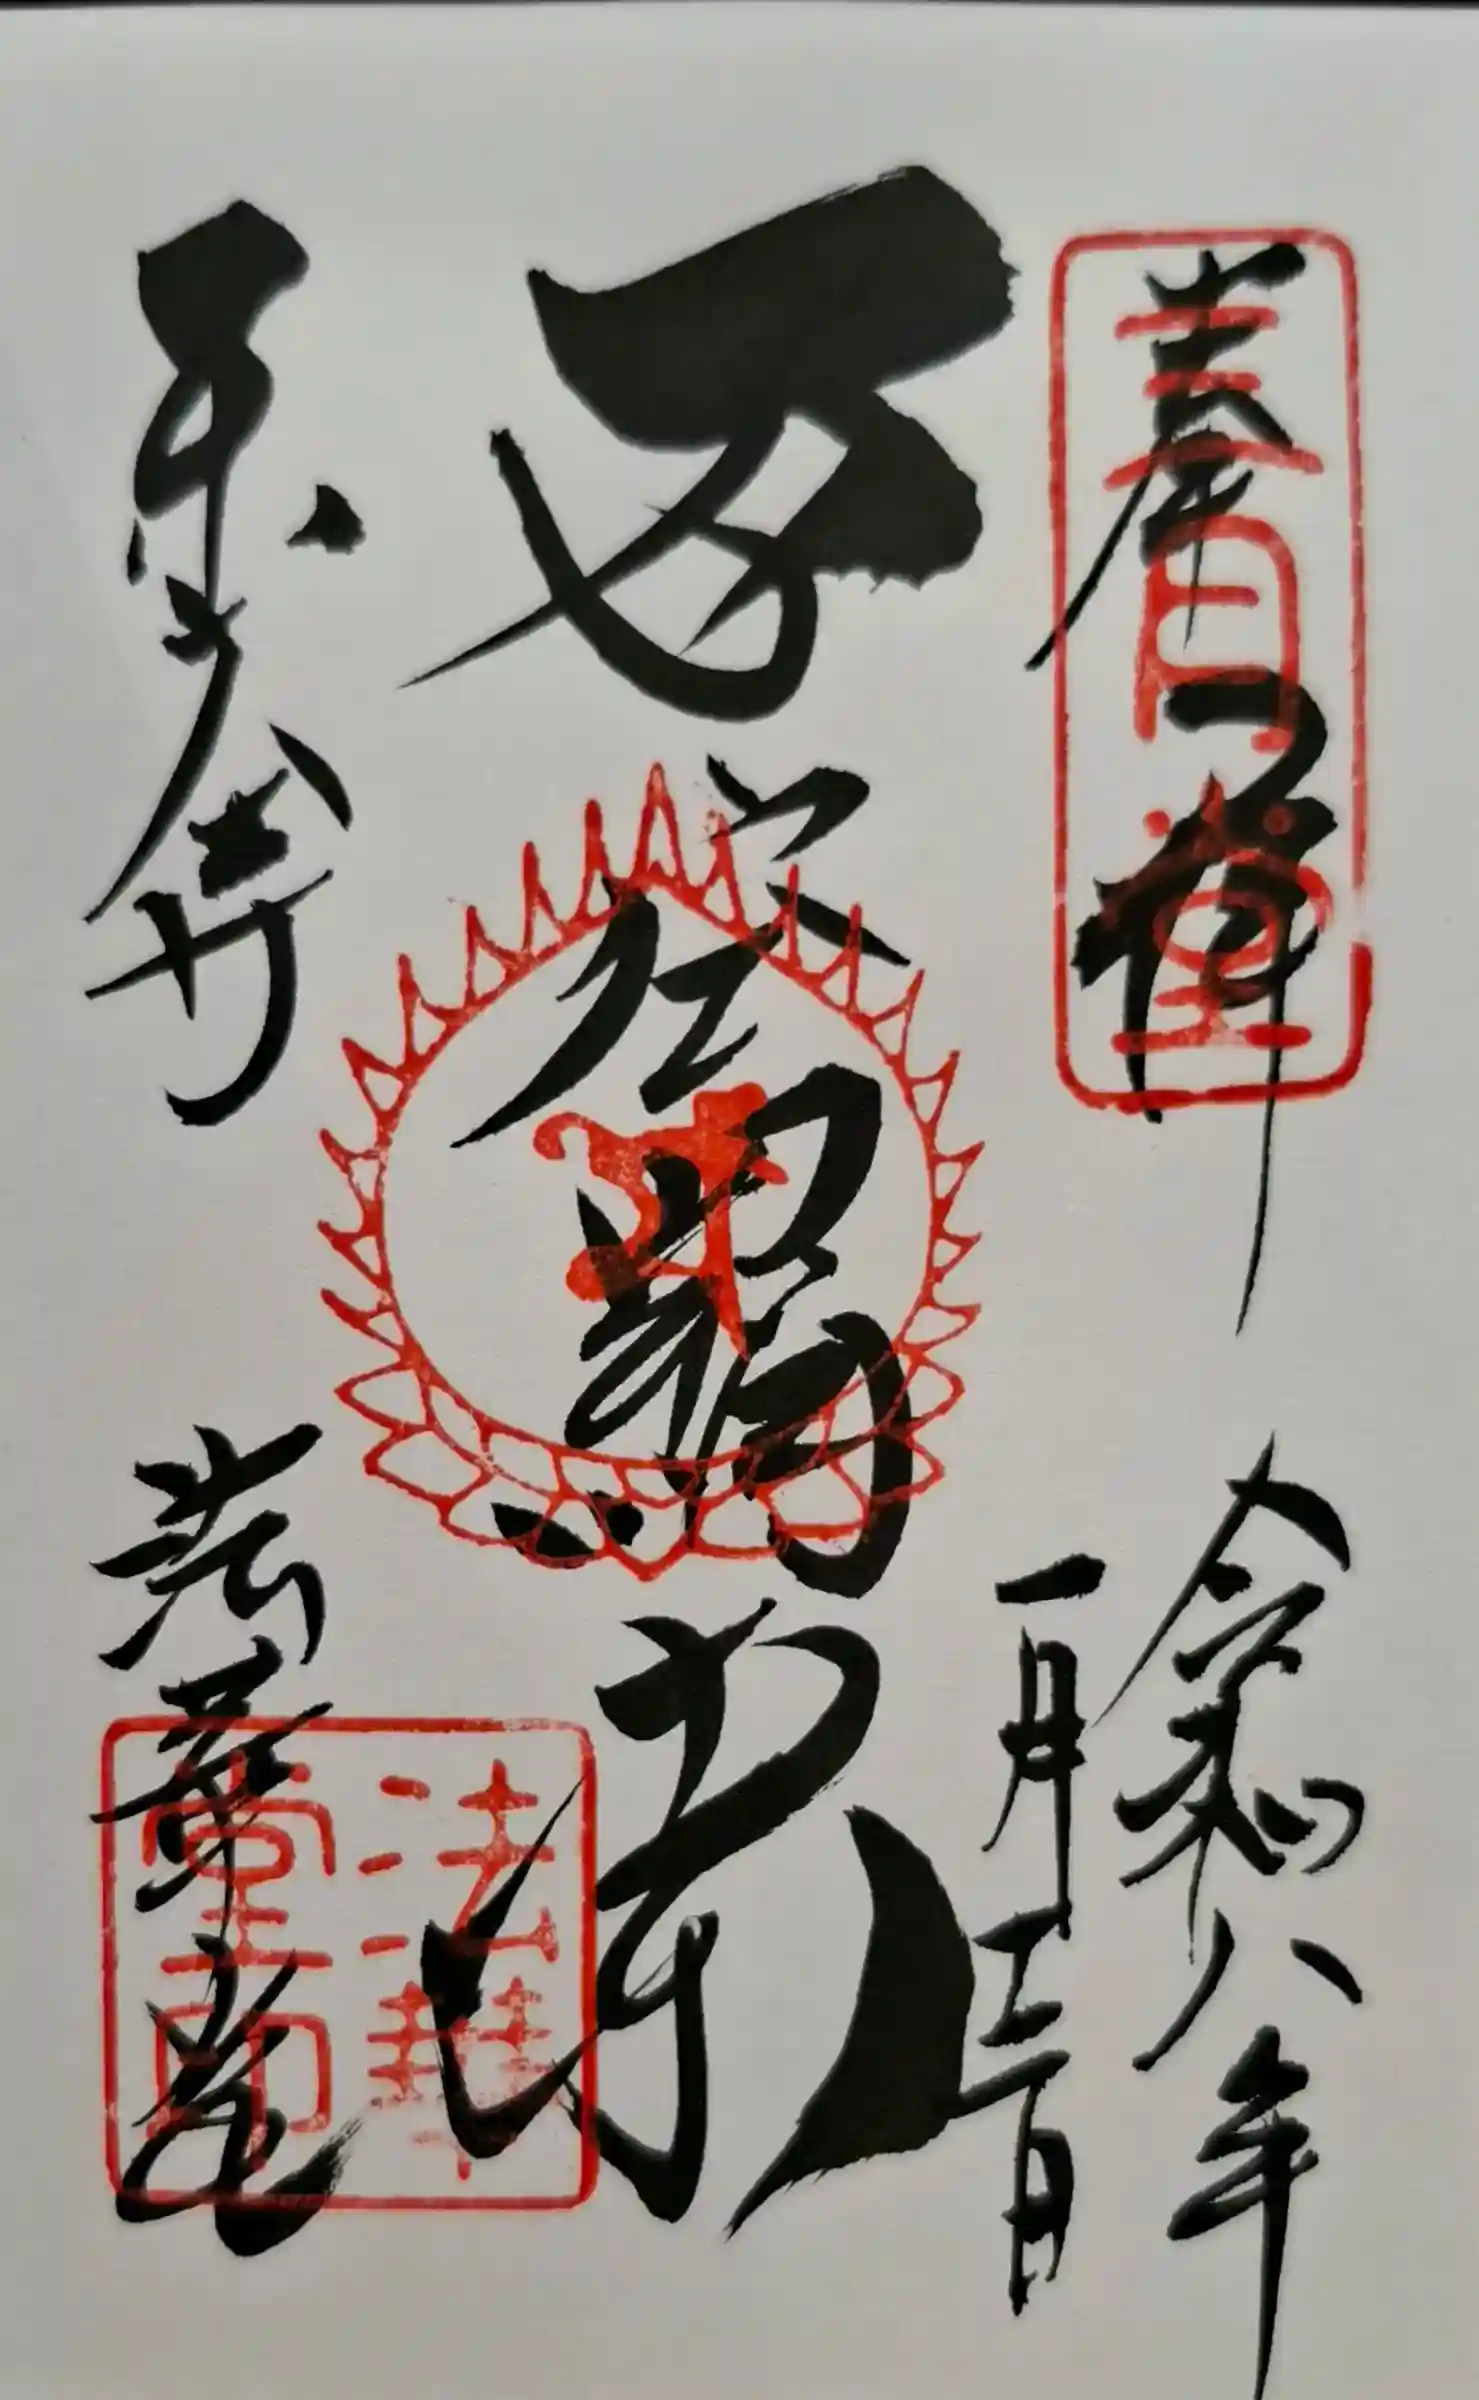 奉拝
三月堂
令和八年
一月三日
不空羂索
東大寺
法華堂
法華堂印